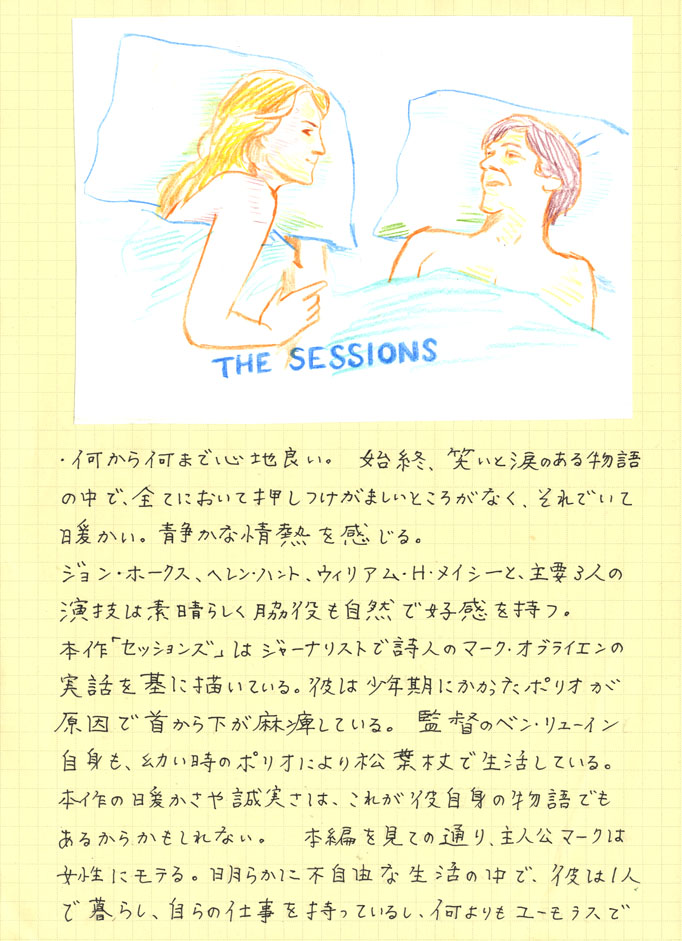 THE SESSIONS
・何から何まで心地良い。 始終、笑いと涙のある物語
の中で、全てにおいて押しつけがましいところがなく、それでいて
暖かい。静かな情熱を感じる。
ジョン・ホークス、ヘレン・ハント、ウィリアム・H・メイシーと、主要3人の
演技は素晴らしく脇役も自然で好感を持つ。
本作「セッションズ」はジャーナリストで詩人のマーク・オブライエンの
実話を基に描いている。彼は少年期にかかったポリオが
原因で首から下が麻痺している。 監督のベン・リューイン
自身も、幼い時のポリオにより松葉杖で生活している。
本作の暖かさや誠実さは、これが彼自身の物語でも
あるからかもしれない。 本編を見ての通り、主人公マークは
女性にモテる。明らかに不自由な生活の中で、彼は1人
で暮らし、自らの仕事を持っているし、何よりもユーモラスで